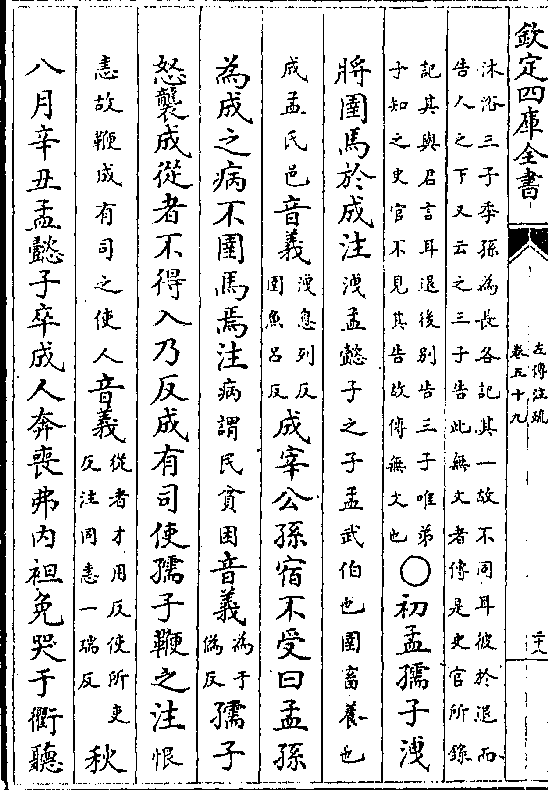 欽定四庫全書
左傳注疏
卷五十九
沐浴三子季孫為長各記其一故不同耳彼於退而
告人之下又云之三子告此無文者傳是史官所錄
記其與君言耳退後別告三子唯弟
子知之史官不見其告故傳無文也
○初孟孺子洩
將圉馬於成注洩孟懿子之子孟武伯也圉畜養也
成孟氏邑音義
洩息列反
圉魚呂反
成宰公孫宿不受曰孟孫
為成之病不圉馬焉注病謂民貧困音義
為于
偽反
孺子
怒襲成從者不得入乃反成有司使孺子鞭之注恨
恚故鞭成有司之使人音義
從者才用反使所吏
反注同恚一瑞反
秋
八月辛丑孟懿子卒成人奔喪弗內袒免哭于衢聽